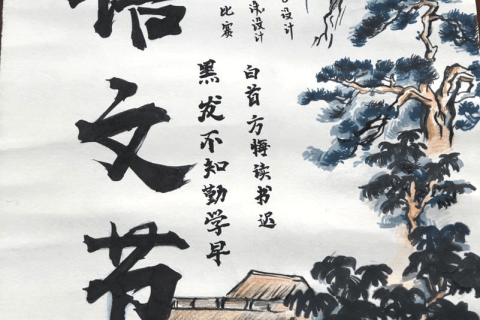 语文节
比赛
设计
设计
黑发不知勤学早
白首方悔读书迟